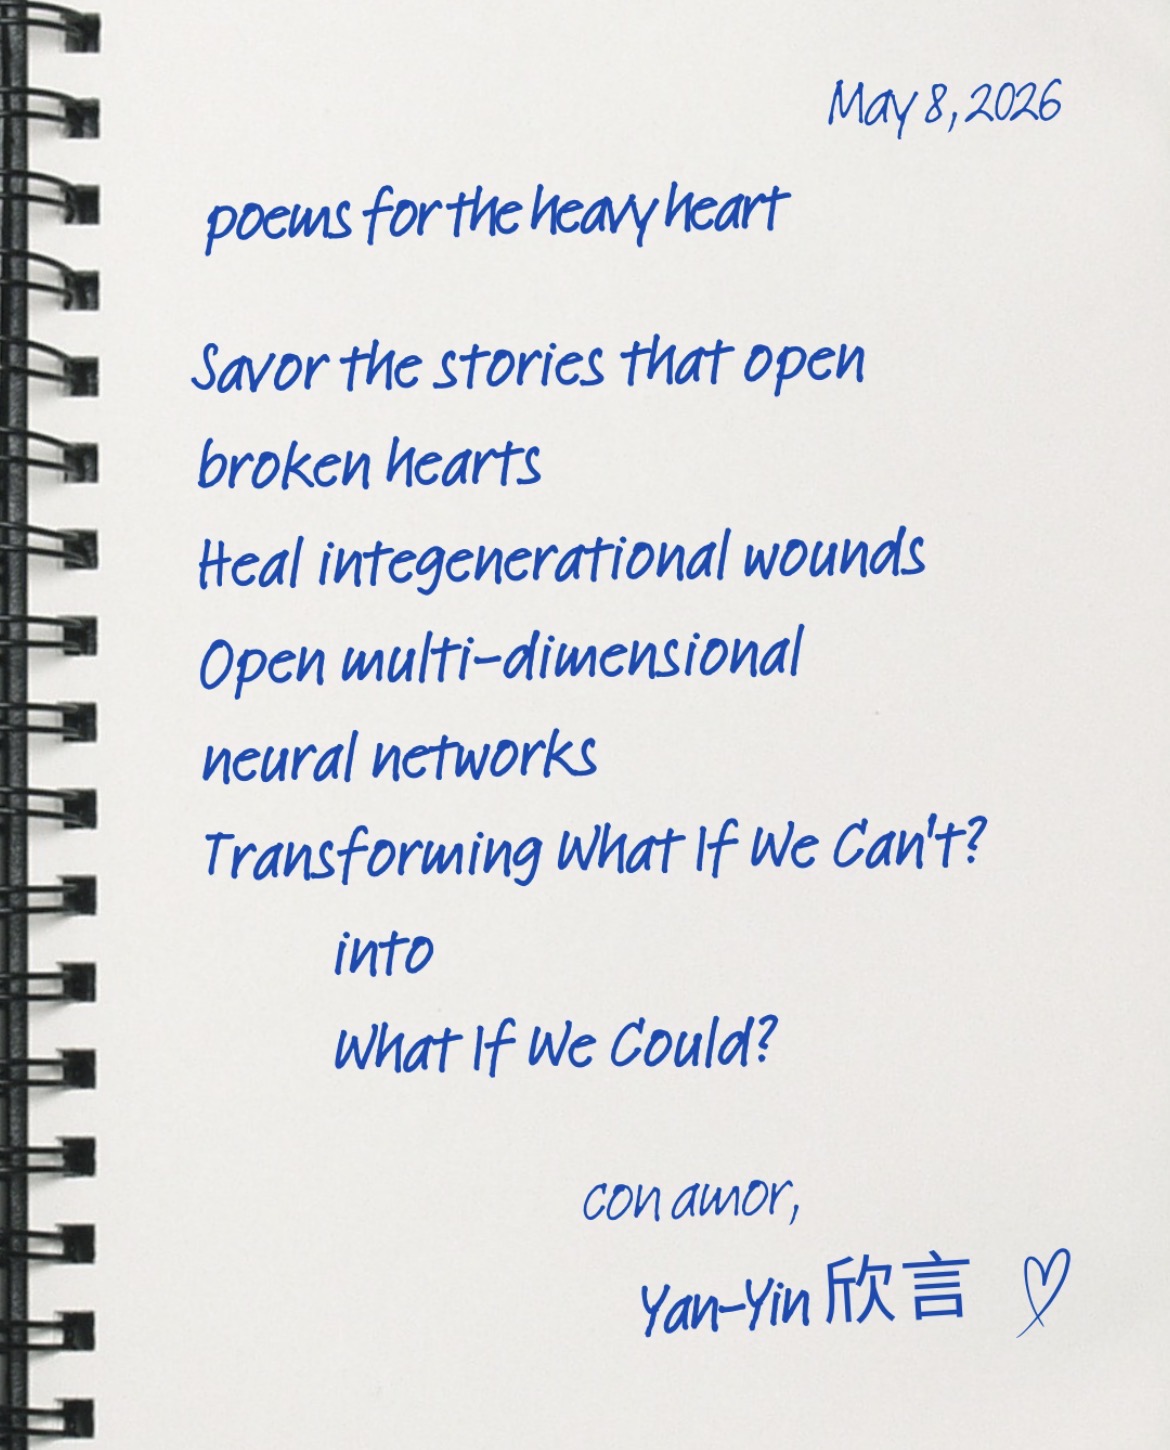 May 8, 2026
poems for the heavy heart
Savor the stories that open
broken hearts
Heal integenerational wounds
Open multi-dimensional
neural networks
Transforming What If We Can't?
into
What If We Could?
con amor,
Yan-Yin 欣言